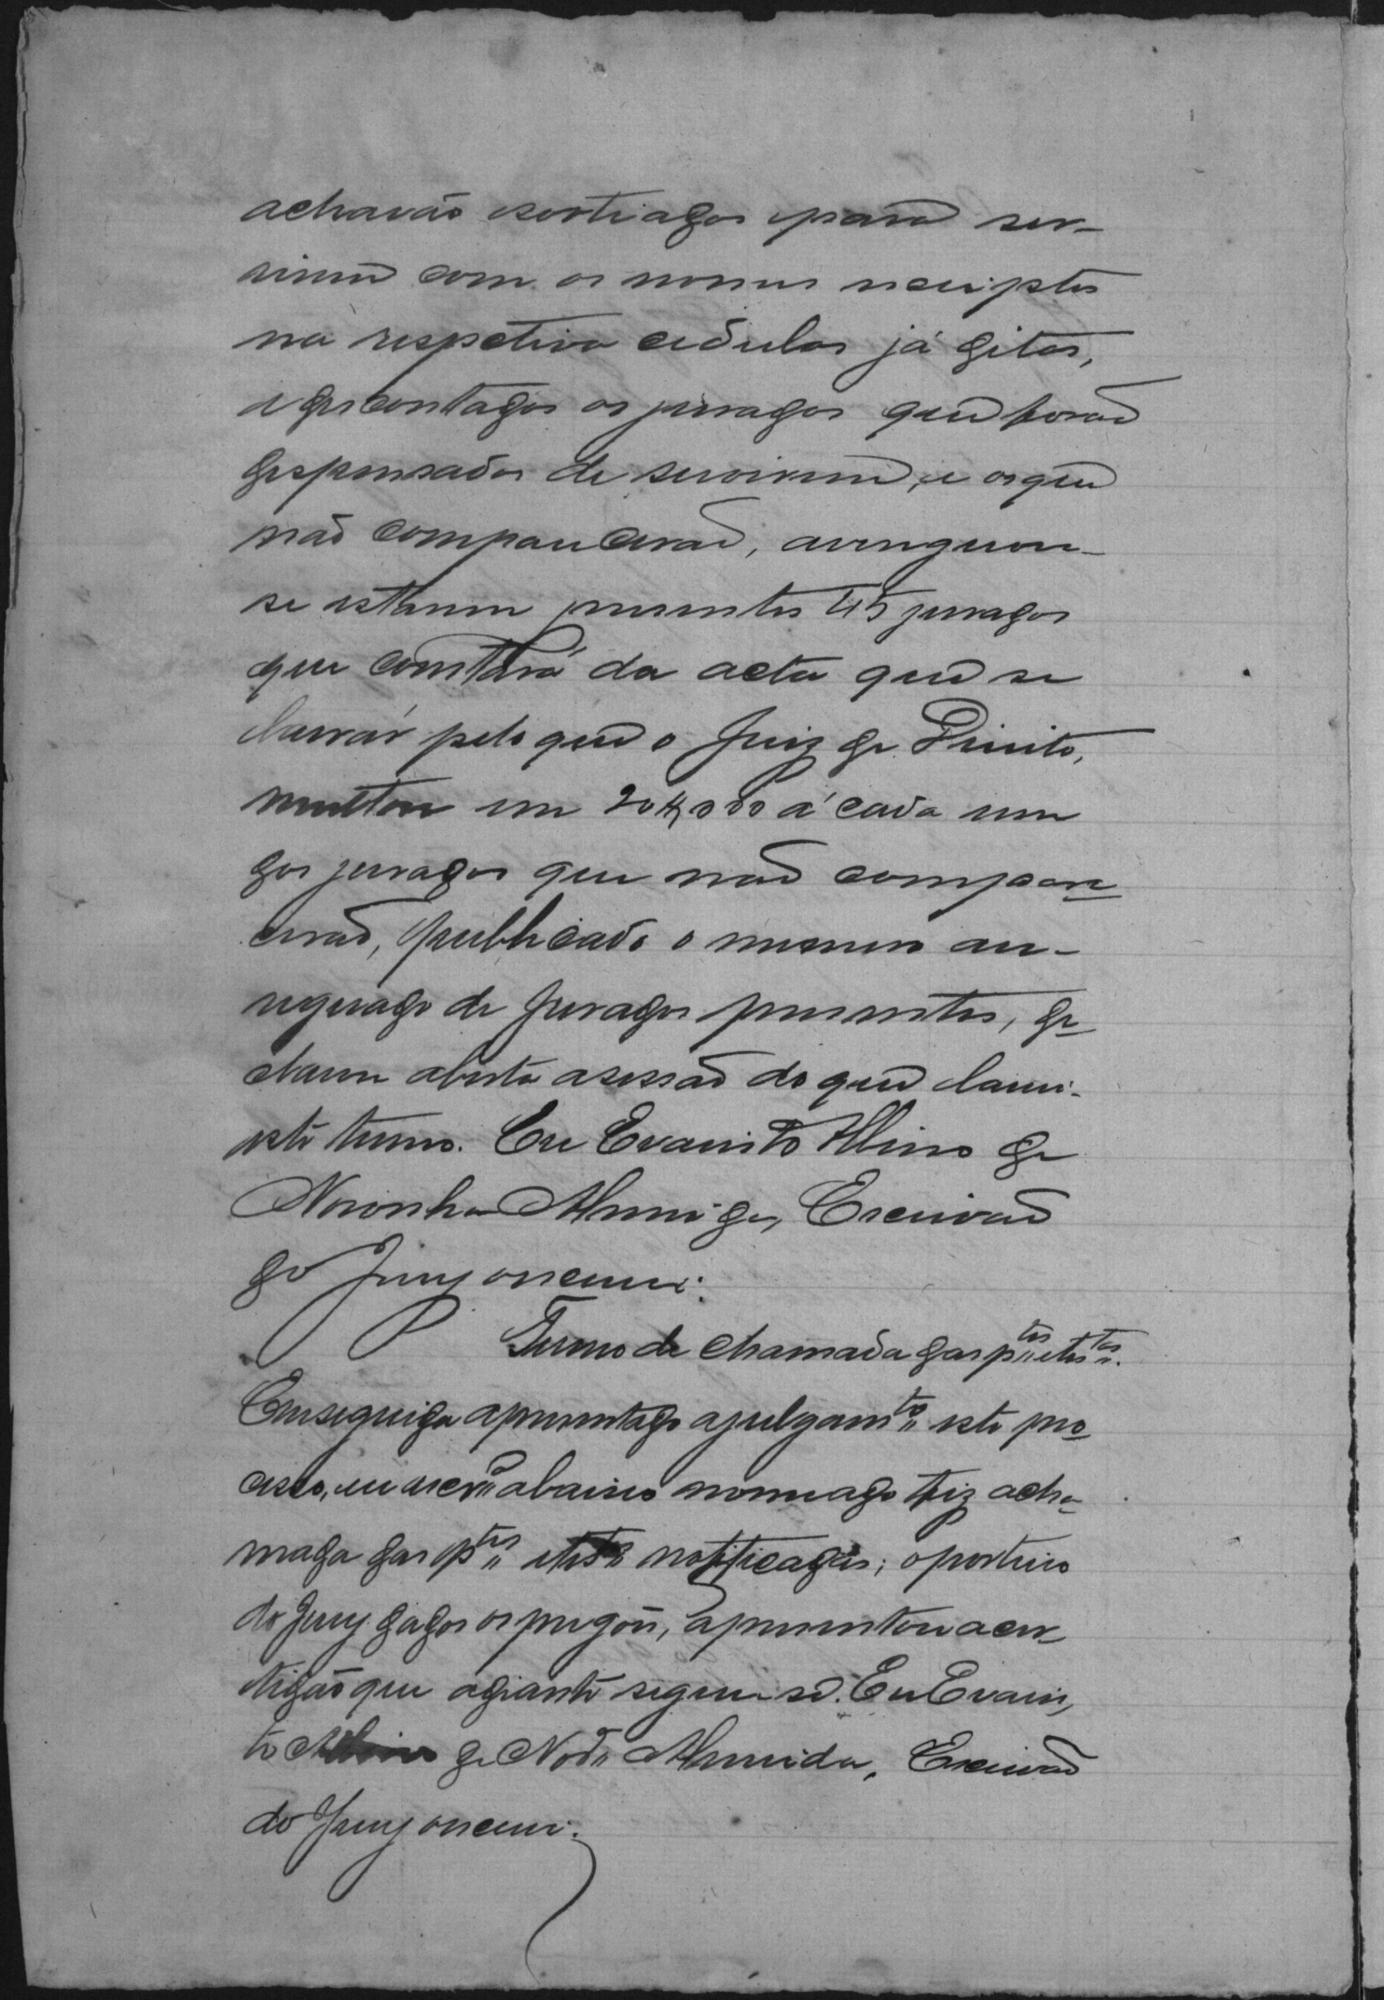 achavão sortiados para ser-
virem com os nomes iscriptos
na respetiva cedulas já ditas,
e descontados os jurados que forão
despensados de servirem, e os que
não comparecerão, averiguou-
se estarem presentes 45 jurados
que constará da acta que se
lavrár pelo que o Juiz de Direito,
multou em 20$000 á cada um
dos jurados que não compare
cerão, publicado o numero au-
de Jurados presentes, de
clarou aberta a sessão do que lavrei
este termo. Eu Evaristo Albino de
Noronha Almeida, Escrivão
do Jury o escrevi.
Termo de chamada das p.tes e tes.tas
Em seguida apresentado a julgam.to este pro
cesso, eu escr.ão abaixo nomeado fiz a cha
mada das p.tes e test.as notificadas; o porteiro
do Jury dados os pregões, apresentou a cer-
tidão que adiante segue-se. Eu Evaris
to Albino de Nor.a Almeida, Escrivão
do Jury o escrevi.